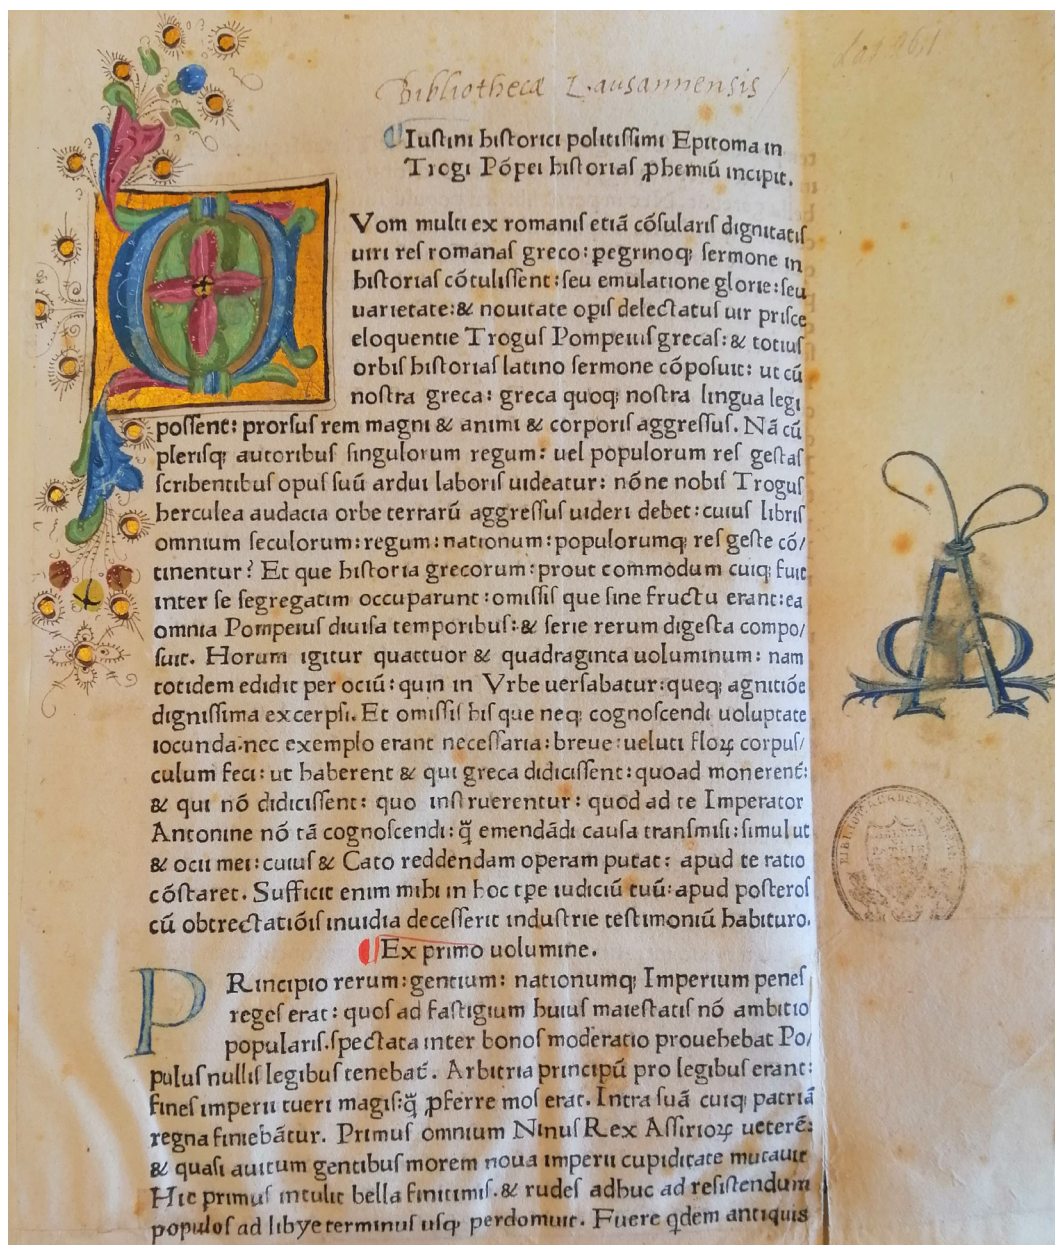 Bibliothecæ Lausannensis
Iuſtini hiſtorici politiſſimi Epitoma in
Trogi Pópei hiſtoriaſ ꝓhemiū incipit.
QVom multi ex romaniſ etiā cóſulariſ dignitatiſ
uiri reſ romanaſ greco: ꝑegrinoqꝫ ſermone in
hiſtoriaſ cótuliſſent: ſeu emulatione glorie: ſeu
uarietate: & nouitate opiſ delectatuſ uir priſce
eloquentie Troguſ Pompeiuſ grecaſ: & totiuſ
orbiſ hiſtoriaſ latino ſermone cópoſuit: ut cū
noſtra greca: greca quoqꝫ noſtra lingua legi
poſſent: prorſuſ rem magni & animi & corporiſ aggreſſuſ. Nā cū
pleriſqꝫ autoribuſ ſingulorum regum: uel populorum reſ geſtaſ
ſcribentibuſ opuſ ſuū ardui laboriſ uideatur: nóne nobiſ Troguſ
herculea audacia orbe terrarū aggreſſuſ uideri debet: cuiuſ libriſ
omnium ſeculorum: regum: nationum: populorumqꝫ reſ geſte có/
tinentur? Et que hiſtoria grecorum: prout commodum cuiqꝫ fuit
inter ſe ſegregatim occuparunt: omiſſiſ que ſine fructu erant: ea
omnia Pompeiuſ diuiſa temporibuſ: & ſerie rerum digeſta compo/
ſuit. Horum igitur quattuor & quadraginta uoluminum: nam
totidem edidit per ociū: quin in Vrbe uerſabatur: queqꝫ agnitióe
digniſſima excerpſi. Et omiſſiſ hiſ que neqꝫ cognoſcendi uoluptate
iocunda: nec exemplo erant neceſſaria: breue: ueluti floꝝ corpuſ/
culum feci: ut haberent & qui greca didiciſſent: quoad monerent́:
& qui nó didiciſſent: quo inſtruerentur: quod ad te Imperator
Antonine nó tā cognoſcendi: q̄̃ emendādi cauſa tranſmiſi: ſimul ut
& ocii mei: cuiuſ & Cato reddendam operam putat: apud te ratio
cóſtaret. Sufficit enim mihi in hoc tꝑe iudiciū tuū: apud poſteroſ
cū obtrectatióiſ inuidia deceſſerit induſtrie teſtimoniū habituro.
Ex primo uolumine.
PRincipio rerum: gentium: nationumqꝫ Imperium peneſ
regeſ erat: quoſ ad faſtigium huiuſ maieſtatiſ nó ambitio
populariſ. ſpectata inter bonoſ moderatio prouehebat Po/
puluſ nulliſ legibuſ tenebat́. Arbitria principū pro legibuſ erant:
fineſ imperii tueri magiſ: q̄̃ ꝓferre moſ erat. Intra ſuā cuiqꝫ patriā
regna finiebātur. Primuſ omnium Ninuſ Rex Aſſirioꝝ ueterē:
& quaſi auitum gentibuſ morem noua imperii cupiditate mutauit
Hic primuſ intulit bella finitimiſ. & rudeſ adhuc ad reſiſtendum
populoſ ad libye terminuſ uſqꝫ perdomuit. Fuere qdem antiquis